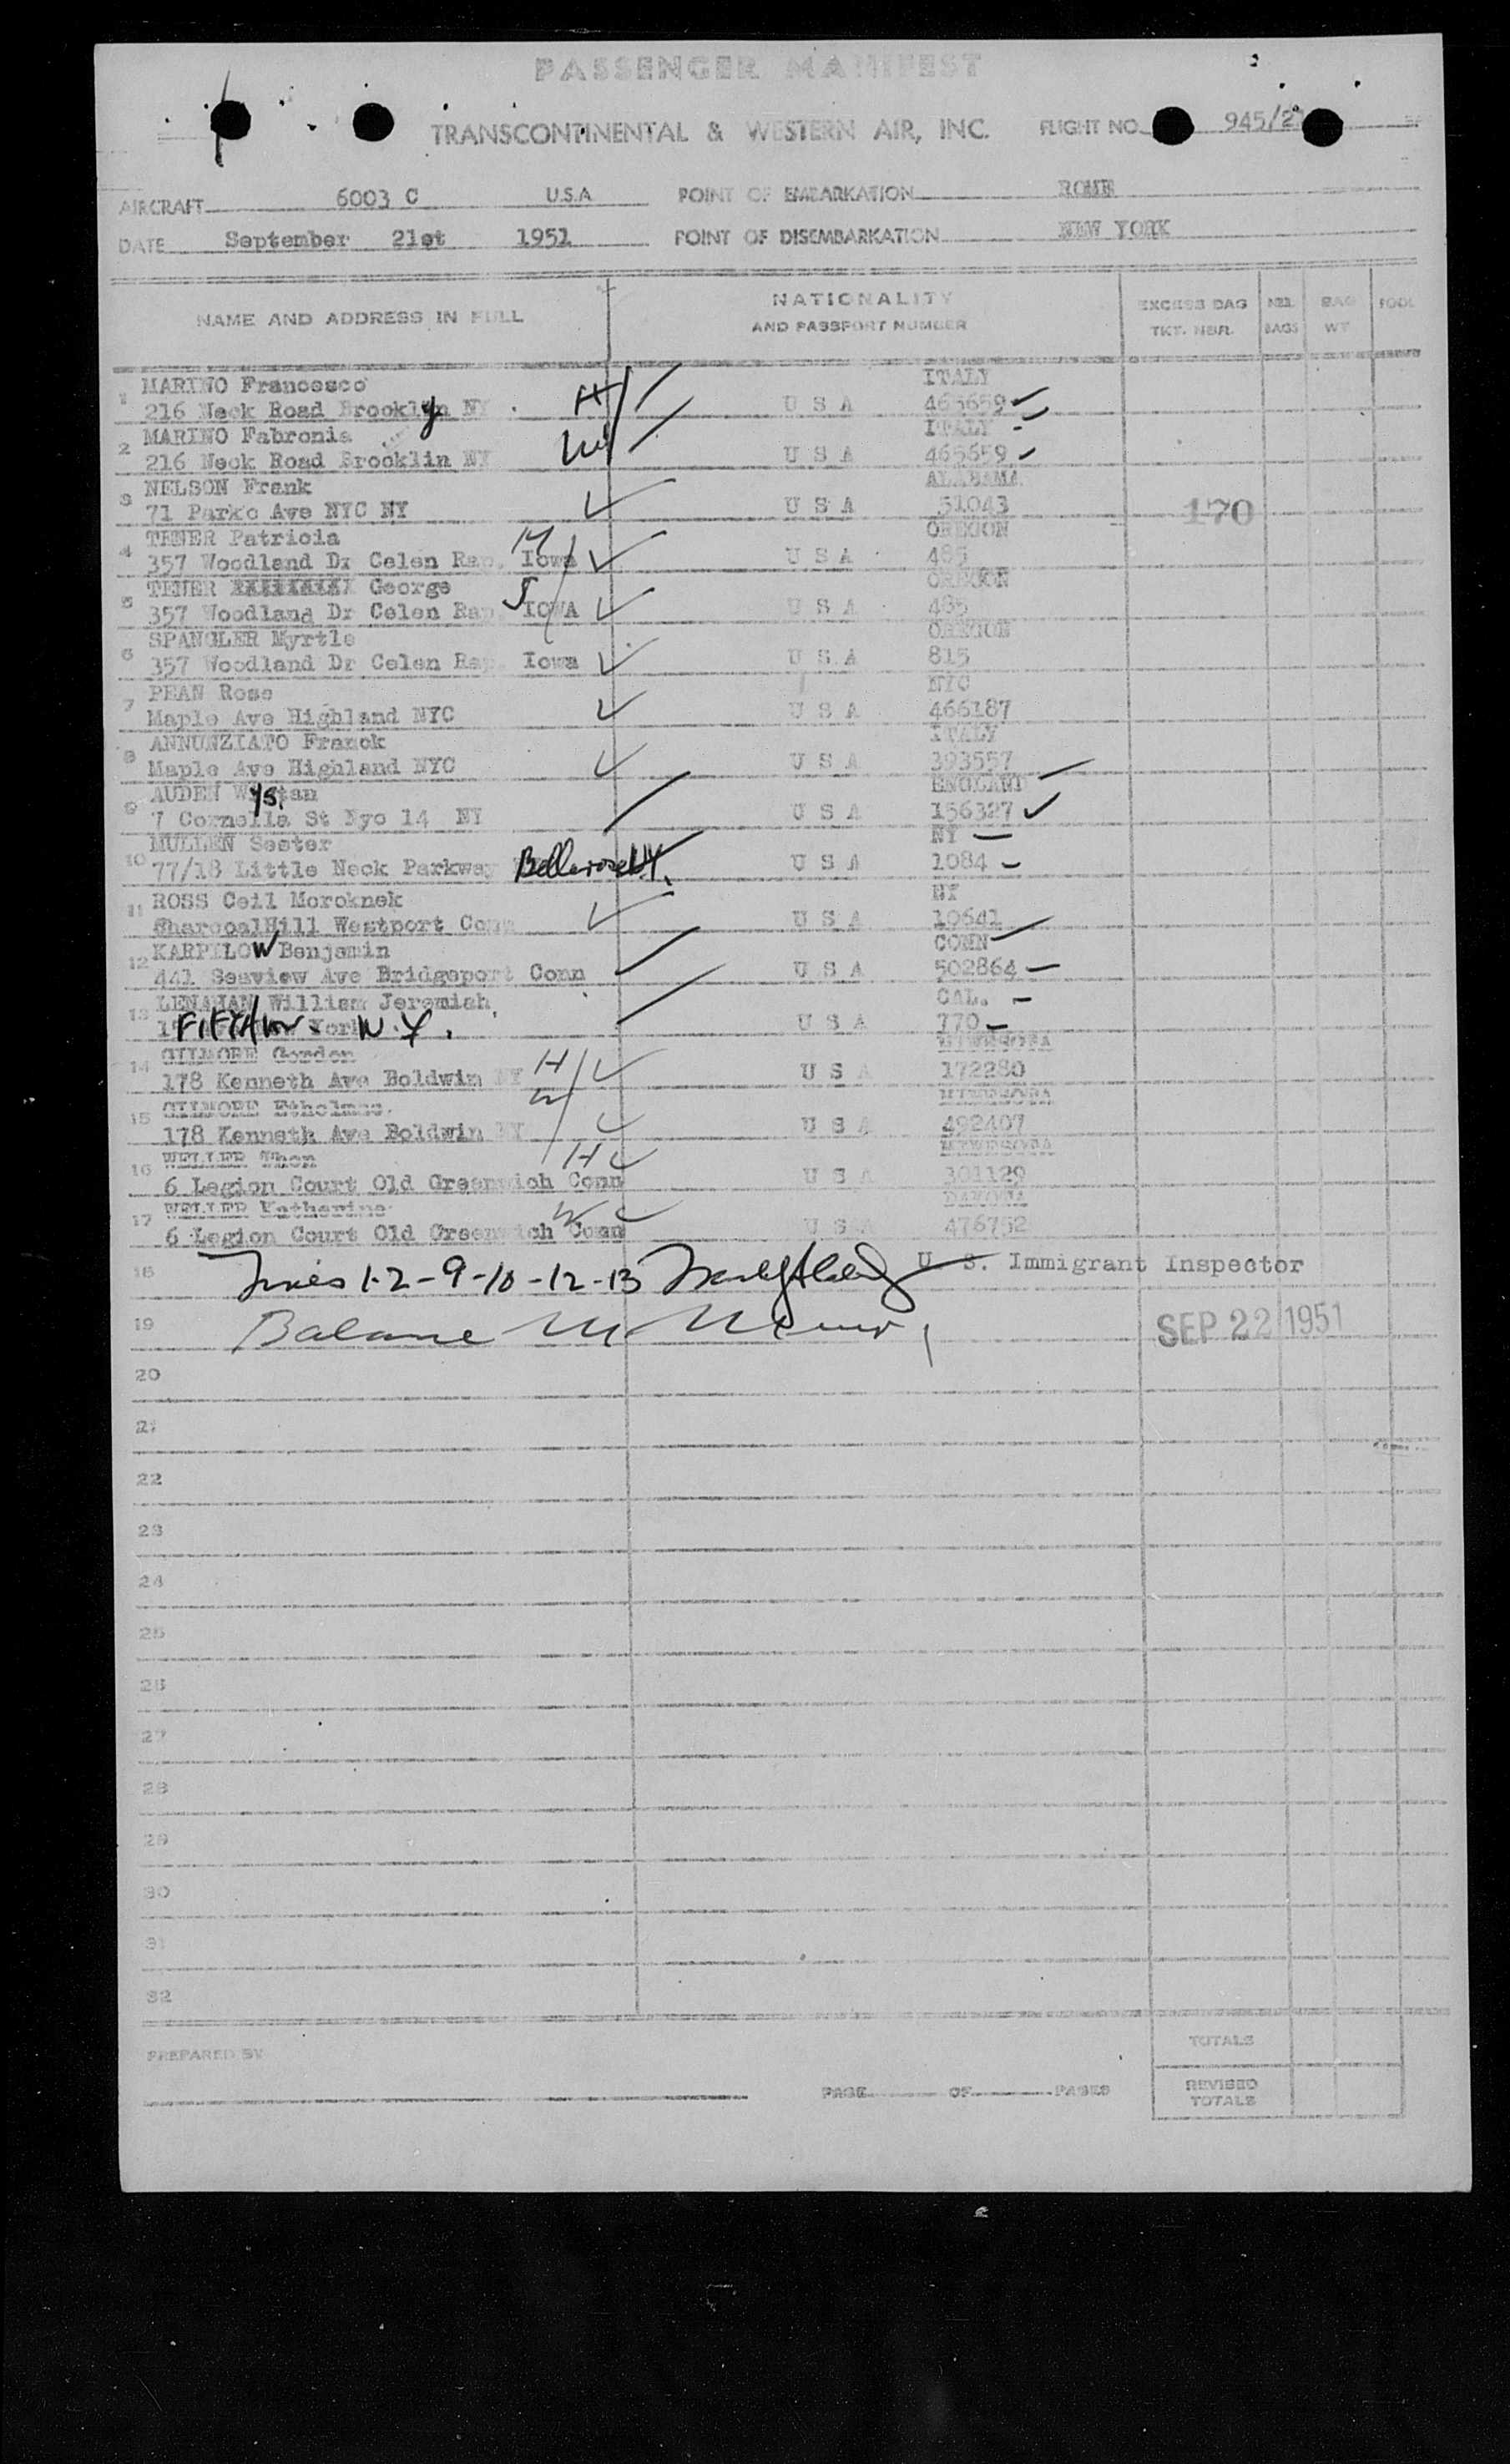 PASSENGER MANIFEST
TRANSCONTINENTAL & WESTERN AIR, INC. FLIGHT NO. 945/2
AIRCRAFT 6003 C U.S.A POINT OF EMBARKATION ROME
DATE September 21st 1951 POINT OF DISEMBARKATION NEW YORK
NAME AND ADDRESS IN FULL NATIONALITY AND PASSPORT NUMBER EXCESS BAG TKT. NBR. BAGS BAG WT
1 MARINO Francesco ITALY
216 Neck Road Brooklyn NY H U S A 465659
2 MARINO Fabronia ITALY
216 Neck Road Brooklin NY W U S A 465659
3 NELSON Frank ALABAMA
71 Parkc Ave NYC NY U S A 51043 170
4 TENER Patricia M OREGON
357 Woodland Dr Celen Rap. Iowa U S A 485
5 TENER George S OREGON
357 Woodland Dr Celen Rap. IOWA U S A 485
6 SPANGLER Myrtle OREGON
357 Woodland Dr Celen Rap. Iowa U S A 815
7 PEAN Rose NYC
Maple Ave Highland NYC U S A 466187
8 ANNUNZIATO Franck ITALY
Maple Ave Highland NYC U S A 393557
9 AUDEN Wystan ENGLAND
7 Cornelia St Nyc 14 NY U S A 156327
10 MULLEN Sester NY
77/18 Little Neck Parkway Bellerose N.Y. U S A 1084
11 ROSS Ceil Moroknek NY
CharcoalHill Westport Conn U S A 19641
12 KARPILOW Benjamin CONN
441 Seaview Ave Bridgeport Conn U S A 502864
13 LENAHAN William Jeremiah CAL.
York N.Y. U S A 770
14 GILMORE Gordon MINESOTA
178 Kenneth Ave Boldwin NY H U S A 172280
15 GILMORE Ethelmae W MINESOTA
178 Kenneth Ave Boldwin NY U S A 492407
16 WELLER Thon H MINESOTA
6 Legion Court Old Greenwich Conn U S A 301129
17 WELLER Katherine W DAKOTA
6 Legion Court Old Greenwich Conn U S A 476752
18 Lines 1-2-9-10-12-13 U. S. Immigrant Inspector
19 Balance SEP 22 1951
20
21
22
23
24
25
26
27
28
29
30
31
32
PREPARED BY TOTALS
PAGE OF PAGES REVISED TOTALS